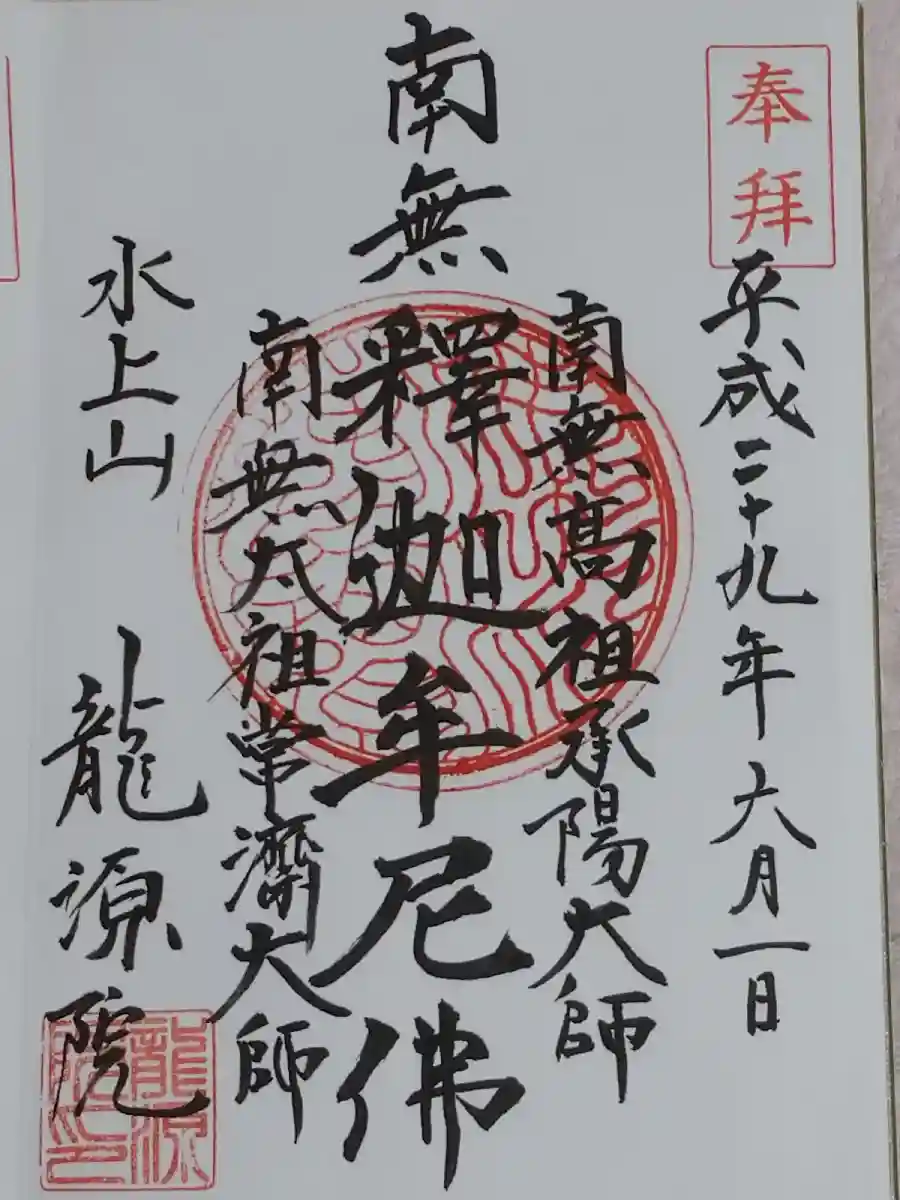 奉拝
平成二十九年六月一日
南無高祖承陽大師
南無釋迦牟尼佛
南無太祖常濟大師
水上山 龍源院
龍源院印